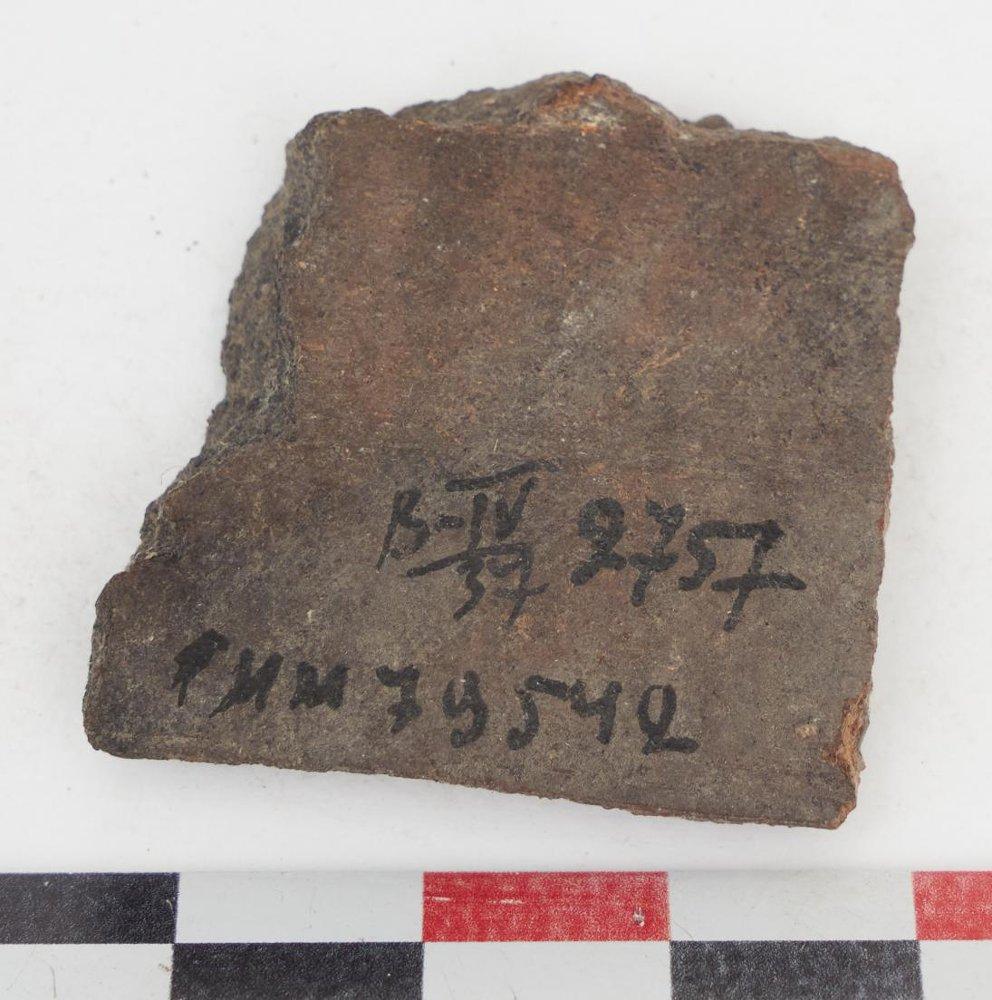 В-IV/37 2757
ГИМ 79542